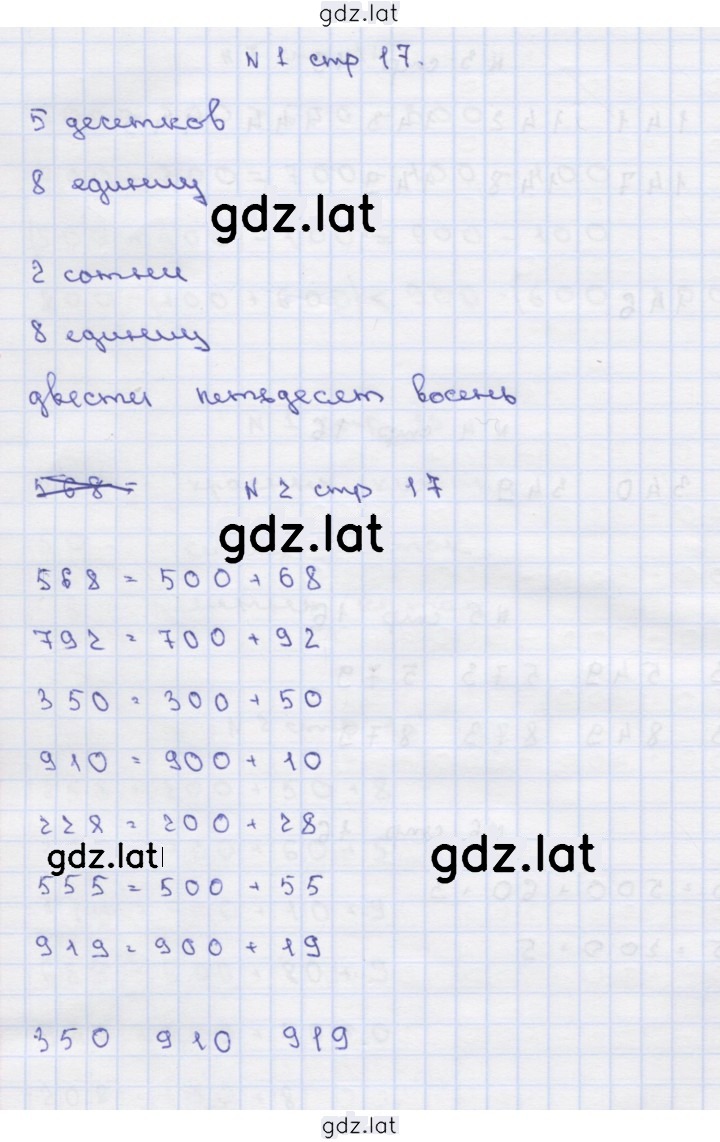 gdz.lat
N 1 стр 17.
5 десетков
8 единиц
gdz.lat
2 сотни
8 единиц
двести петьдесет восемь
568 = N 2 стр 17
gdz.lat
568 = 500 + 68
792 = 700 + 92
350 = 300 + 50
910 = 900 + 10
228 = 200 + 28
gdz.lat gdz.lat
555 = 500 + 55
919 = 900 + 19
350 910 919
gdz.lat